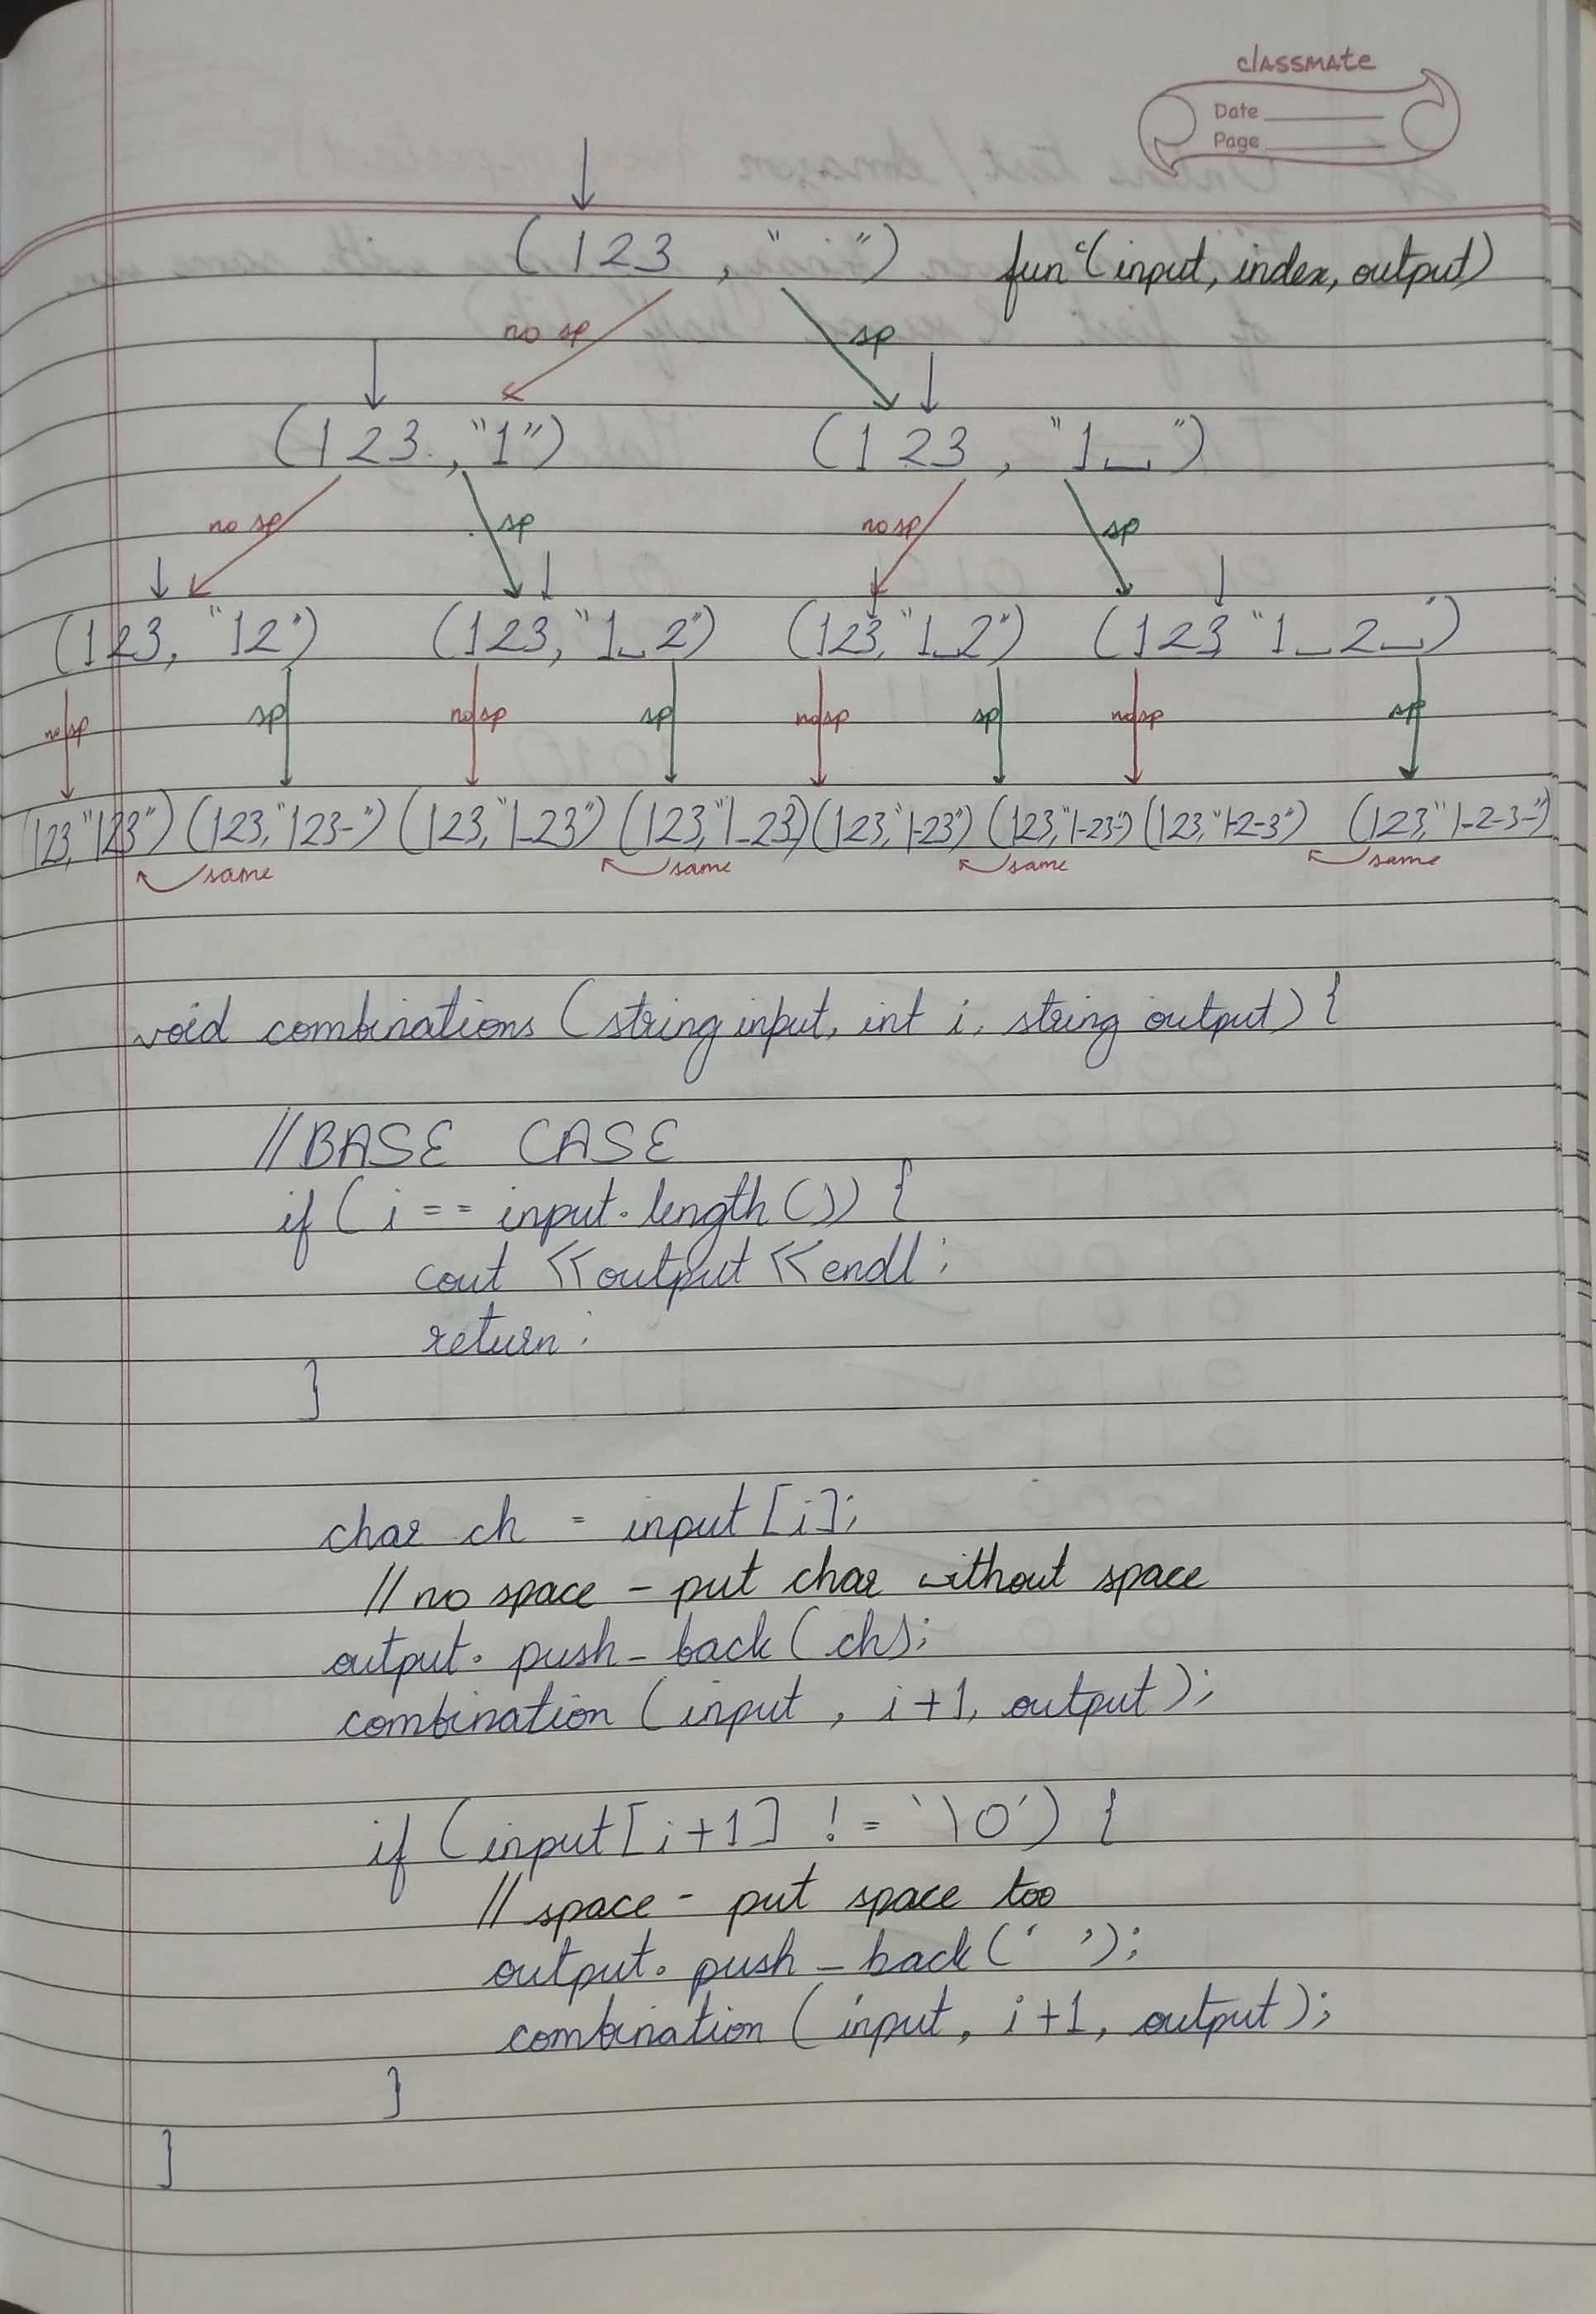 classmate
Date
Page
(123, " ") func(input, index, output)
no sp sp
(123, "1") (123, "1_")
no sp sp no sp sp
(123, "12") (123, "1_2") (123, "1_2") (123 "1_2_")
no sp sp no sp sp no sp sp no sp sp
(123, "123") (123, "123-") (123, "1_23") (123, "1_23) (123, "1-23") (123, "1-23-) (123, "1-2-3") (123, "1-2-3-")
same same same same
void combinations (string input, int i, string output) {
//BASE CASE
if (i == input.length()) {
cout << output << endl;
return;
}
char ch = input[i];
// no space - put char without space
output.push_back(ch);
combination (input, i+1, output);
if (input[i+1] != '\0') {
// space - put space too
output.push_back(' ');
combination (input, i+1, output);
}
}